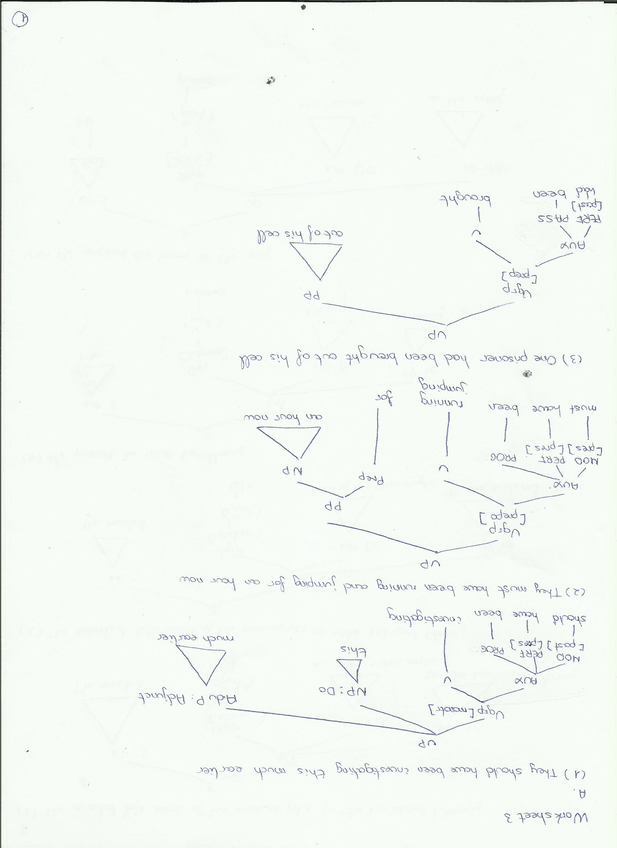 Worksheet 3
A.
(1) They should have been investigating this much earlier
VP
Vgrp [monotr] NP: DO AdvP: Adjunct
AUX V
MOD PERF PROG this much earlier
[past] [pres]
should have been investigating
(2) They must have been running and jumping for an hour now
VP
Vgrp PP
[prepo]
AUX V Prep NP
MOD PERF PROG
[pres] [pres]
must have been running for an hour now
jumping
(3) One prisoner had been brought out of his cell
VP
Vgrp PP
[prep]
AUX V
PERF PASS out of his cell
[past]
had been brought